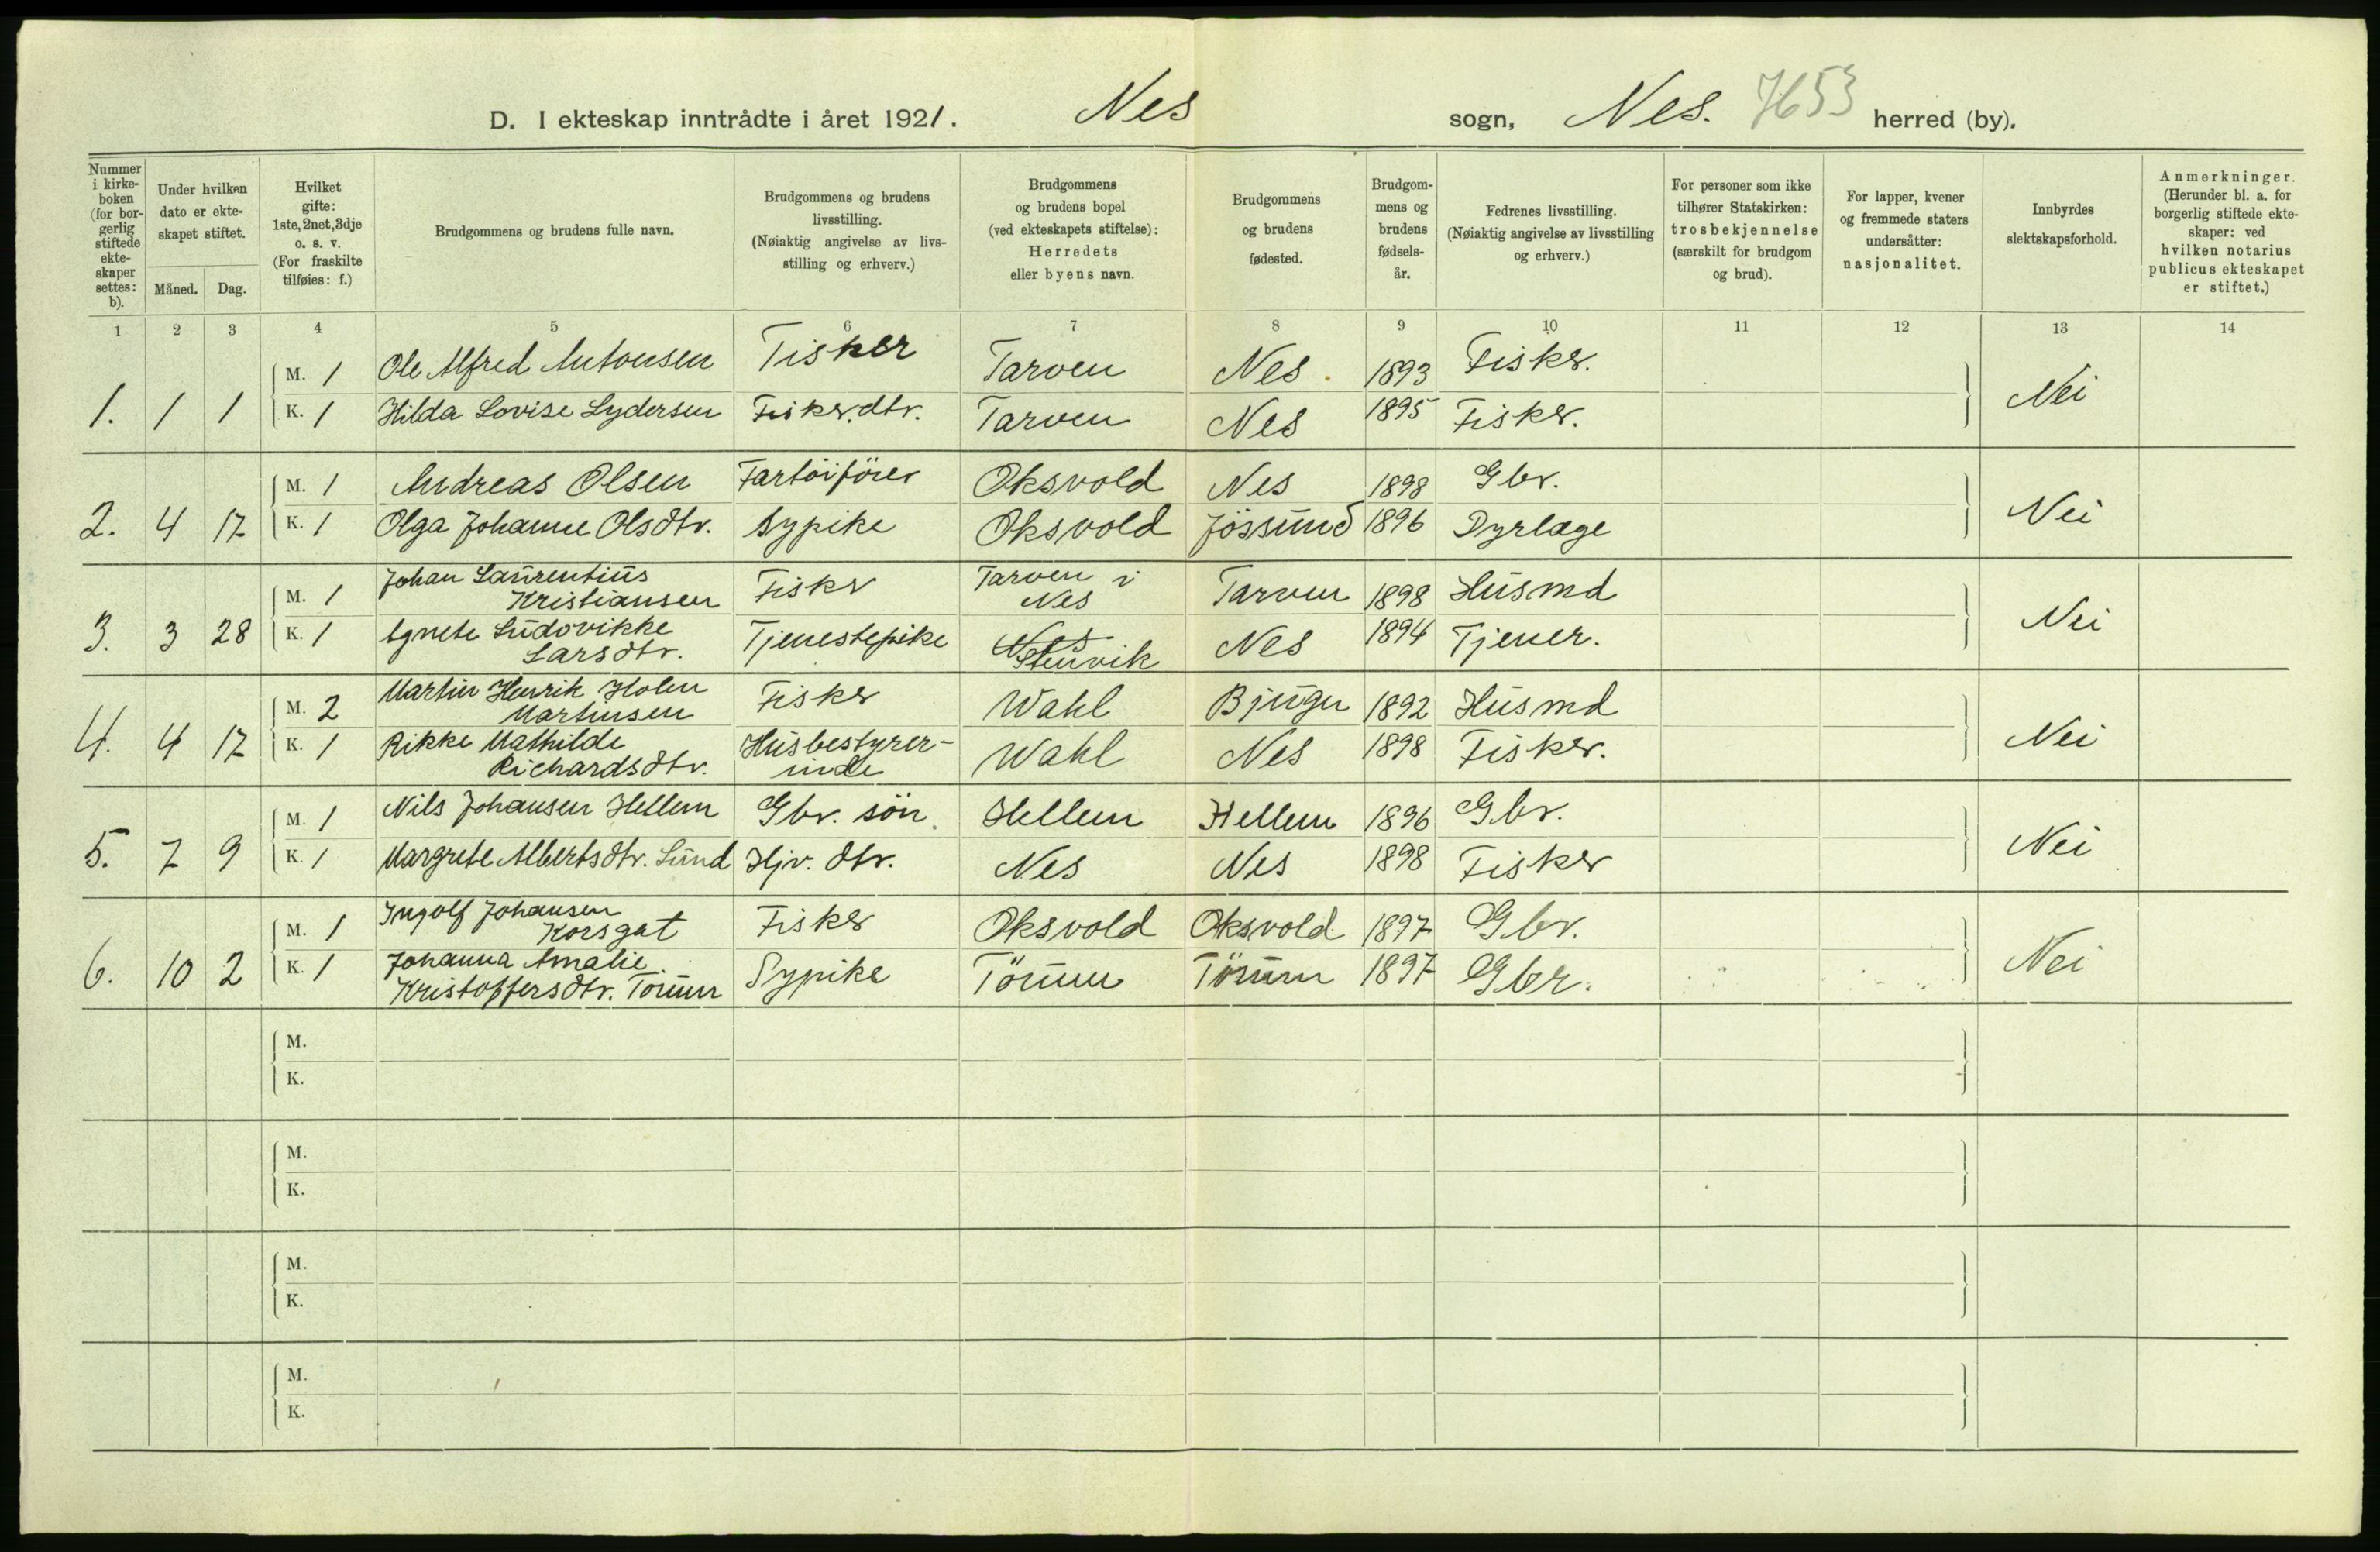 D. I ekteskap inntrådte i året 1921. Nes sogn, Nes. 7653 herred (by).
Nummer i kirke-boken (for bor-gerlig stiftede ekte-skaper settes: b).
Under hvilken dato er ekte-skapet stiftet.
Måned. Dag.
Hvilket gifte: 1ste, 2net, 3dje o. s. v. (For fraskilte tilføies: f.)
Brudgommens og brudens fulle navn.
Brudgommens og brudens livsstilling. (Nøiaktig angivelse av livs-stilling og erhverv.)
Brudgommens og brudens bopel (ved ekteskapets stiftelse): Herredets eller byens navn.
Brudgommens og brudens fødested.
Brudgom-mens og brudens fødsels-år.
Fedrenes livsstilling. (Nøiaktig angivelse av livsstilling og erhverv.)
For personer som ikke tilhører Statskirken: trosbekjennelse (særskilt for brudgom og brud).
For lapper, kvener og fremmede staters undersåtter: nasjonalitet.
Innbyrdes slektskapsforhold.
Anmerkninger. (Herunder bl. a. for borgerlig stiftede ekte-skaper: ved hvilken notarius publicus ekteskapet er stiftet.)
1 2 3 4 5 6 7 8 9 10 11 12 13 14
1. 1 1 M. 1 Ole Alfred Antonsen Fisker Tarven Nes. 1893 Fisker. Nei
K. 1 Hilda Lovise Lydersen Fisker.dtr. Tarven Nes 1895 Fisker.
2. 4 17 M. 1 Andreas Olsen Fartöiförer Oksvold Nes 1898 Gbr. Nei
K. 1 Olga Johanne Olsdtr. Sypike Oksvold Jössund 1896 Dyrlæge
3. 3 28 M. 1 Johan Laurentius Kristiansen Fisker Tarven i Nes Tarven 1898 Husmd Nei
K. 1 Agnete Ludovikke Larsdtr. Tjenestepike Nes Stenvik Nes 1894 Tjener.
4. 4 17 M. 2 Martin Henrik Holen Martinsen Fisker Wahl Bjugn 1892 Husmd Nei
K. 1 Rikke Mathilde Richardsdtr. Husbestyrer-inde Wahl Nes 1898 Fisker.
5. 7 9 M. 1 Nils Johansen Hellem Gbr. sön. Hellem Hellem 1896 Gbr. Nei
K. 1 Margrete Albertsdtr. Lund Hjv. dtr. Nes Nes 1898 Fisker
6. 10 2 M. 1 Ingolf Johansen Korsgat Fisker Oksvold Oksvold 1897 Gbr. Nei
K. 1 Johanna Amalie Kristoffersdtr. Törum Sypike Törum Törum 1897 Gbr.
M.
K.
M.
K.
M.
K.
M.
K.